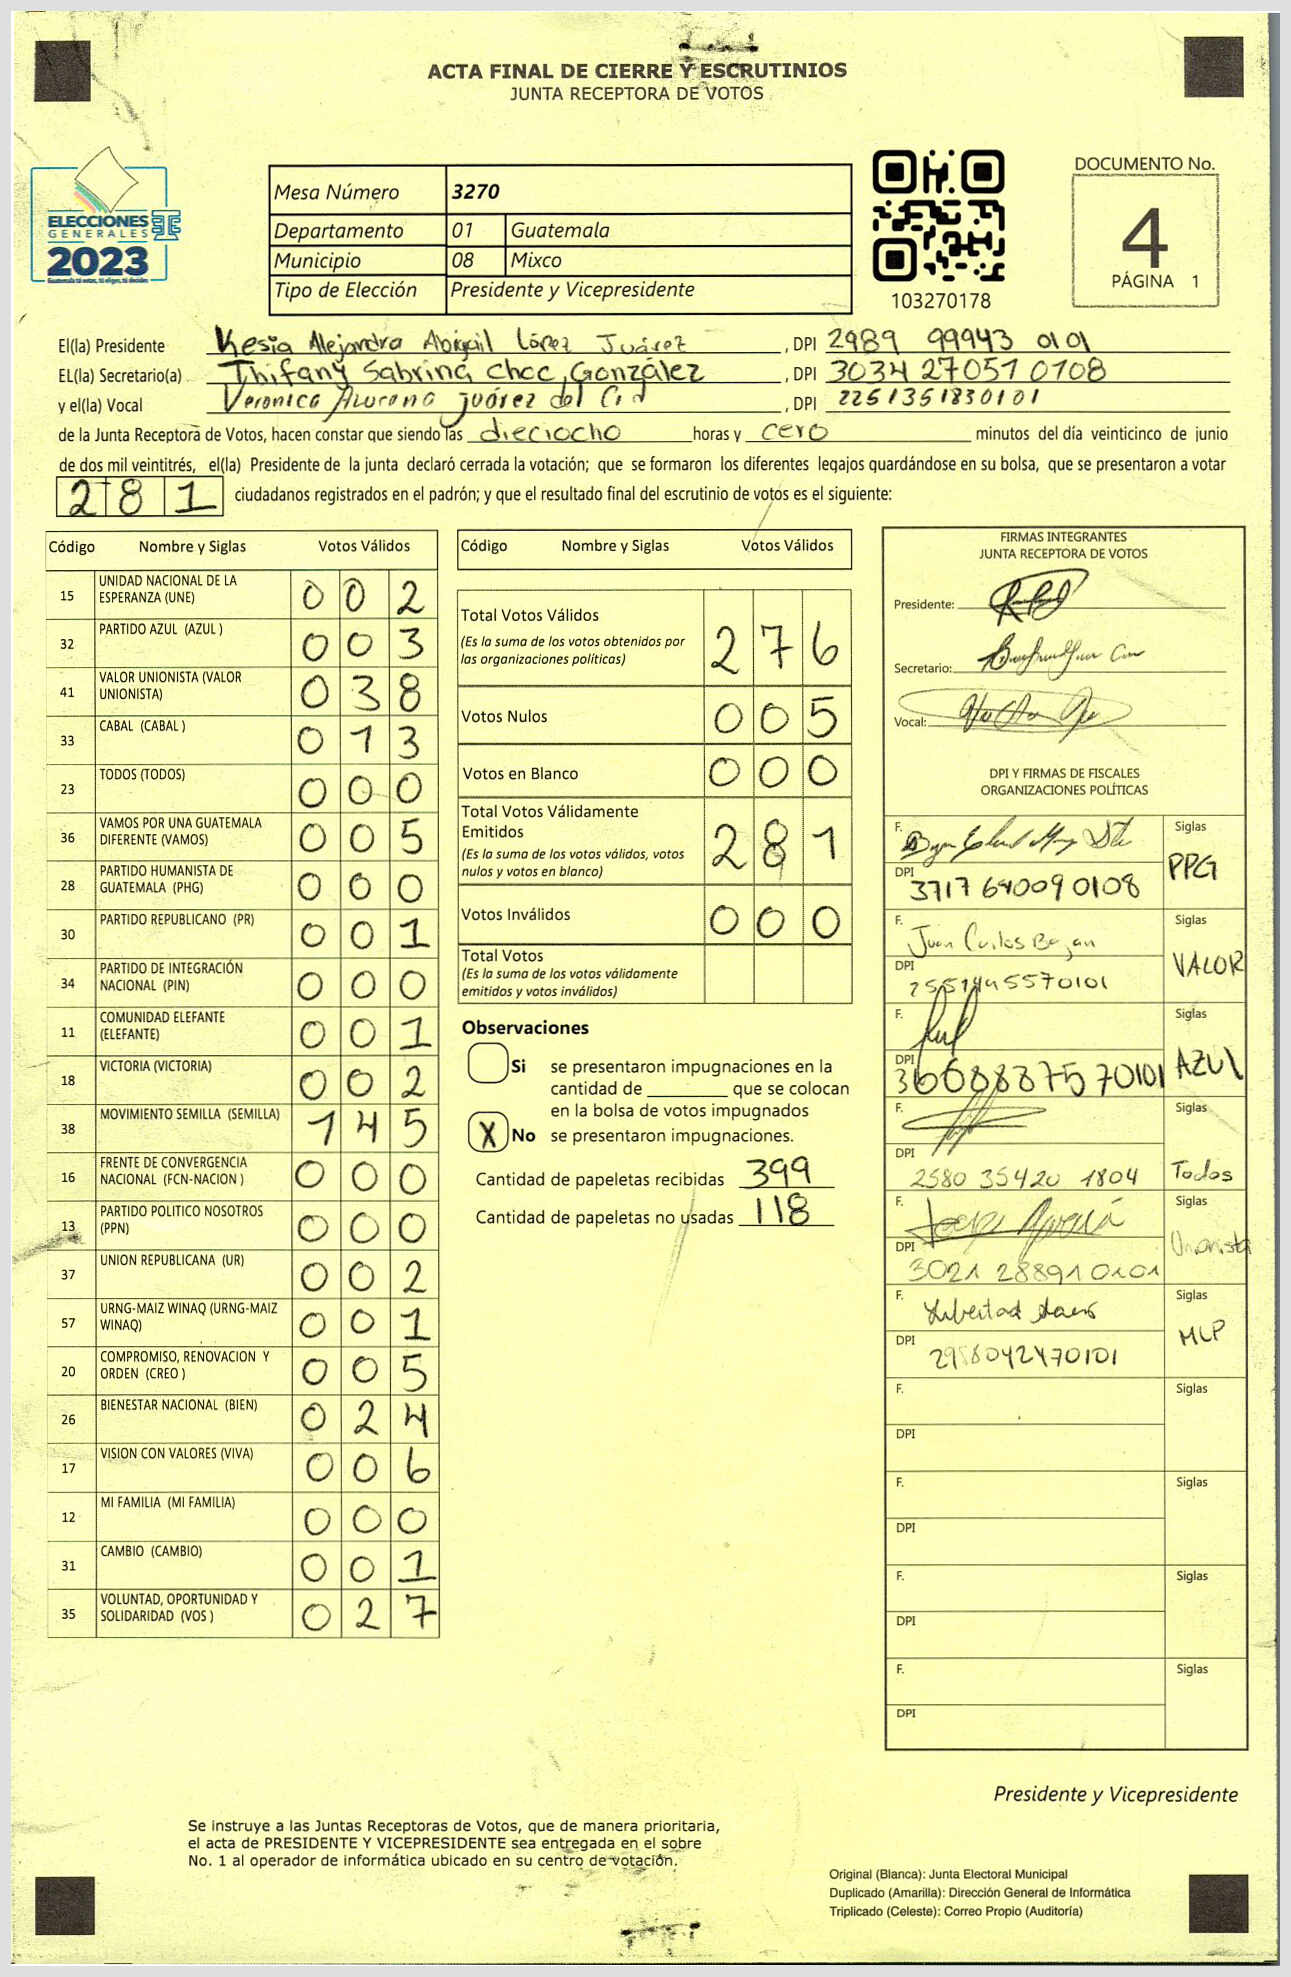 ACTA FINAL DE CIERRE Y ESCRUTINIOS
JUNTA RECEPTORA DE VOTOS
ELECCIONES
GENERALES
2023
Mesa Número 3270
Departamento 01 Guatemala
Municipio 08 Mixco
Tipo de Elección Presidente y Vicepresidente
103270178
DOCUMENTO No.
4
PÁGINA 1
El(la) Presidente Kesia Alejandra Abigail López Juárez , DPI 2989 99943 0101
EL(la) Secretario(a) Thifany Sabrina Choc González , DPI 3034 27051 0108
y el(la) Vocal Veronica juárez del Cid , DPI 2251351830101
de la Junta Receptora de Votos, hacen constar que siendo las dieciocho horas y cero minutos del día veinticinco de junio
de dos mil veintitrés, el(la) Presidente de la junta declaró cerrada la votación; que se formaron los diferentes legajos guardándose en su bolsa, que se presentaron a votar
281 ciudadanos registrados en el padrón; y que el resultado final del escrutinio de votos es el siguiente:
Código Nombre y Siglas Votos Válidos
15 UNIDAD NACIONAL DE LA ESPERANZA (UNE) 0 0 2
32 PARTIDO AZUL (AZUL ) 0 0 3
41 VALOR UNIONISTA (VALOR UNIONISTA) 0 3 8
33 CABAL (CABAL ) 0 1 3
23 TODOS (TODOS) 0 0 0
36 VAMOS POR UNA GUATEMALA DIFERENTE (VAMOS) 0 0 5
28 PARTIDO HUMANISTA DE GUATEMALA (PHG) 0 0 0
30 PARTIDO REPUBLICANO (PR) 0 0 1
34 PARTIDO DE INTEGRACIÓN NACIONAL (PIN) 0 0 0
11 COMUNIDAD ELEFANTE (ELEFANTE) 0 0 1
18 VICTORIA (VICTORIA) 0 0 2
38 MOVIMIENTO SEMILLA (SEMILLA) 1 4 5
16 FRENTE DE CONVERGENCIA NACIONAL (FCN-NACION ) 0 0 0
13 PARTIDO POLITICO NOSOTROS (PPN) 0 0 0
37 UNION REPUBLICANA (UR) 0 0 2
57 URNG-MAIZ WINAQ (URNG-MAIZ WINAQ) 0 0 1
20 COMPROMISO, RENOVACION Y ORDEN (CREO ) 0 0 5
26 BIENESTAR NACIONAL (BIEN) 0 2 4
17 VISION CON VALORES (VIVA) 0 0 6
12 MI FAMILIA (MI FAMILIA) 0 0 0
31 CAMBIO (CAMBIO) 0 0 1
35 VOLUNTAD, OPORTUNIDAD Y SOLIDARIDAD (VOS ) 0 2 7
Código Nombre y Siglas Votos Válidos
Total Votos Válidos 2 7 6
(Es la suma de los votos obtenidos por
las organizaciones políticas)
Votos Nulos 0 0 5
Votos en Blanco 0 0 0
Total Votos Válidamente
Emitidos 2 8 1
(Es la suma de los votos válidos, votos
nulos y votos en blanco)
Votos Inválidos 0 0 0
Total Votos
(Es la suma de los votos válidamente
emitidos y votos inválidos)
Observaciones
Si se presentaron impugnaciones en la
cantidad de ________ que se colocan
en la bolsa de votos impugnados
X No se presentaron impugnaciones.
Cantidad de papeletas recibidas 399
Cantidad de papeletas no usadas 118
FIRMAS INTEGRANTES
JUNTA RECEPTORA DE VOTOS
Presidente:
Secretario:
Vocal:
DPI Y FIRMAS DE FISCALES
ORGANIZACIONES POLÍTICAS
F. Siglas
DPI 3717 64009 0108 PPG
F. Juan Carlos Siglas
DPI VALOR
F. Siglas
DPI 3668887570101 AZUL
F. Siglas
DPI 2580 35420 1804 Todos
F. Siglas
DPI 3021 28891 0101 Unionista
F. Libertad Siglas
DPI 2958042470101 MLP
F. Siglas
DPI
F. Siglas
DPI
F. Siglas
DPI
F. Siglas
DPI
Presidente y Vicepresidente
Se instruye a las Juntas Receptoras de Votos, que de manera prioritaria,
el acta de PRESIDENTE Y VICEPRESIDENTE sea entregada en el sobre
No. 1 al operador de informática ubicado en su centro de votación.
Original (Blanca): Junta Electoral Municipal
Duplicado (Amarilla): Dirección General de Informática
Triplicado (Celeste): Correo Propio (Auditoría)